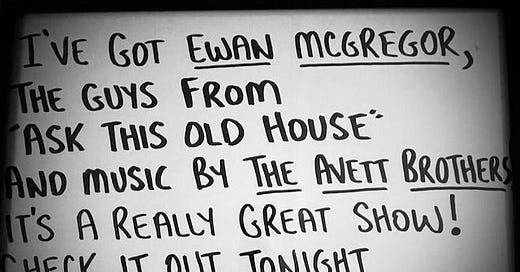 I'VE GOT EWAN MCGREGOR,
THE GUYS FROM
"ASK THIS OLD HOUSE"
AND MUSIC BY THE AVETT BROTHERS
IT'S A REALLY GREAT SHOW!
CHECK IT OUT TONIGHT